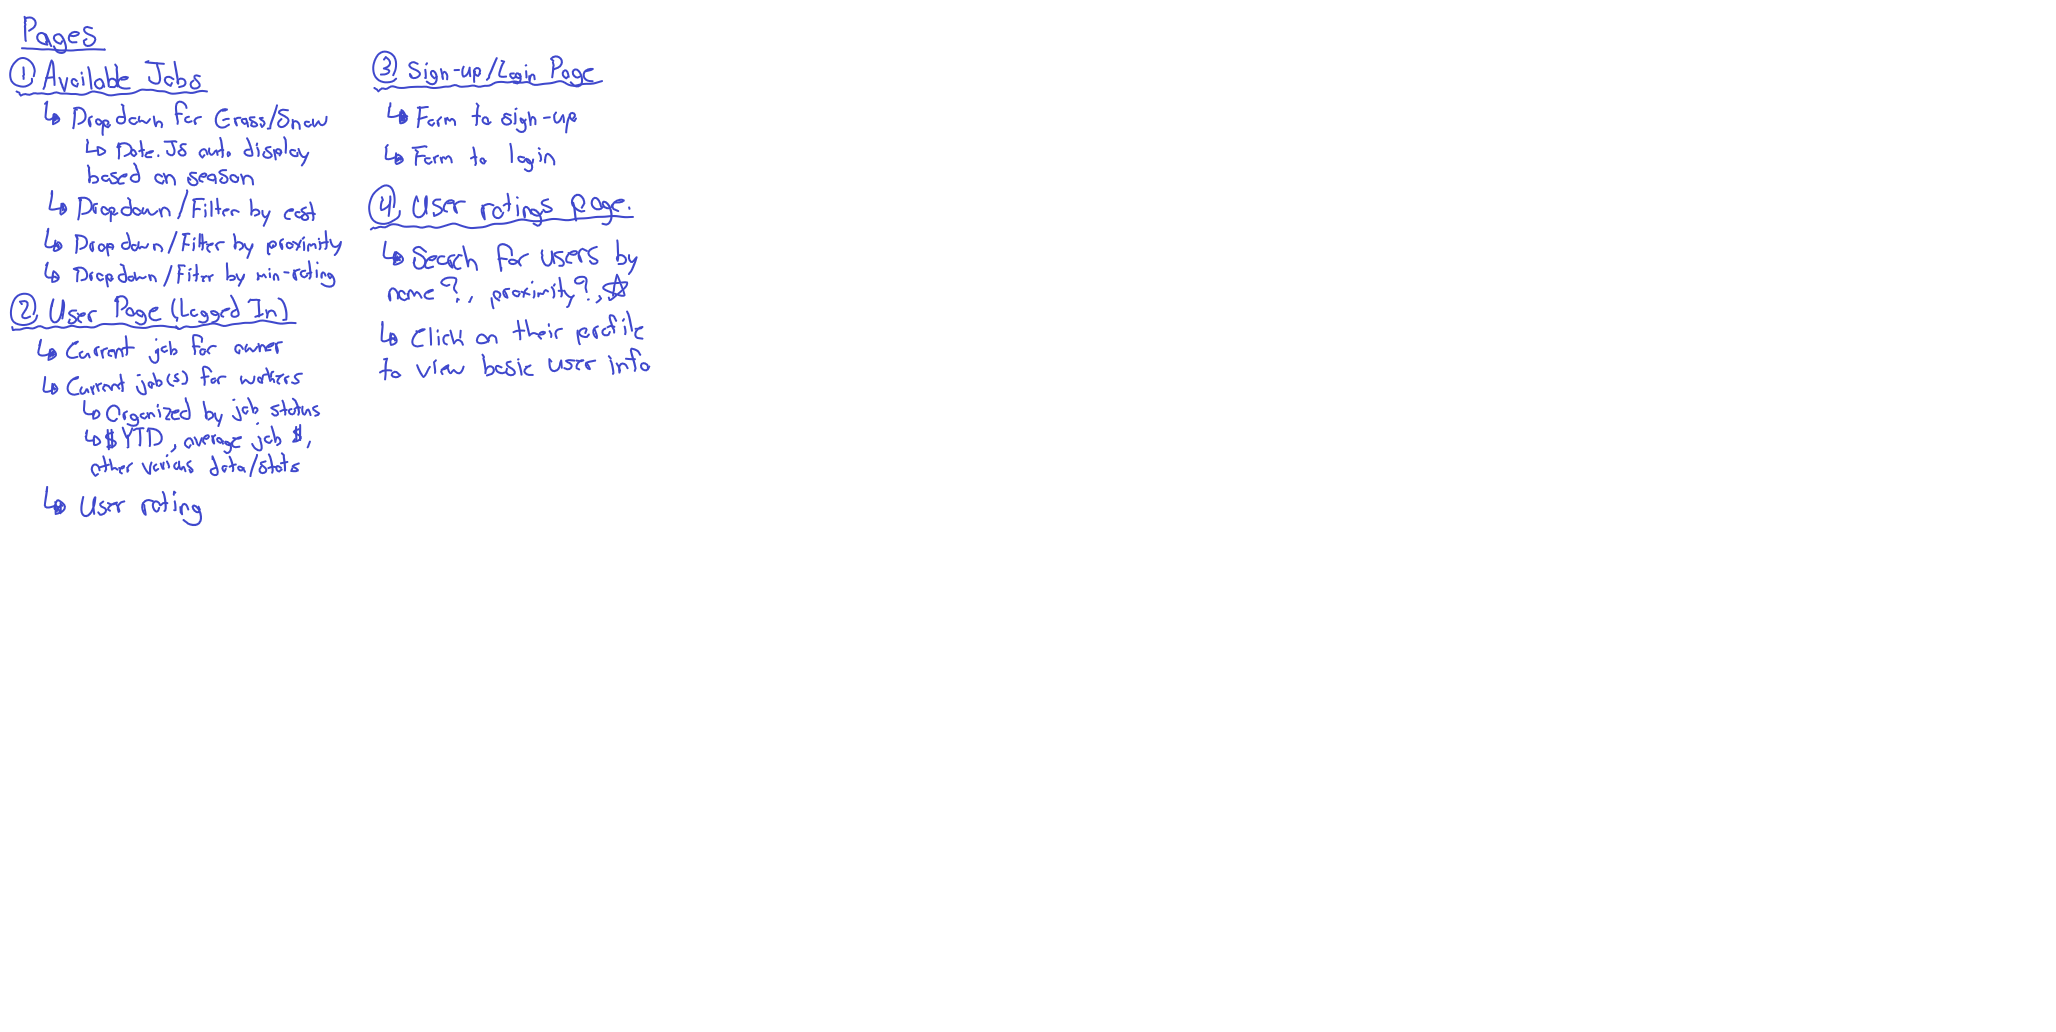 Pages
① Available Jobs
↳ Dropdown for Grass/Snow
↳ Date.JS auto display
based on season
↳ Dropdown/Filter by cost
↳ Dropdown/Filter by proximity
↳ Dropdown/Filter by min-rating
② User Page (Logged In)
↳ Current job for owner
↳ Current job(s) for workers
↳ Organized by job status
↳ $ YTD, average job $,
other various data/stats
↳ User rating
③ Sign-up/Login Page
↳ Form to sign-up
↳ Form to login
④ User ratings page.
↳ Search for users by
name?, proximity?, ☆
↳ Click on their profile
to view basic user info